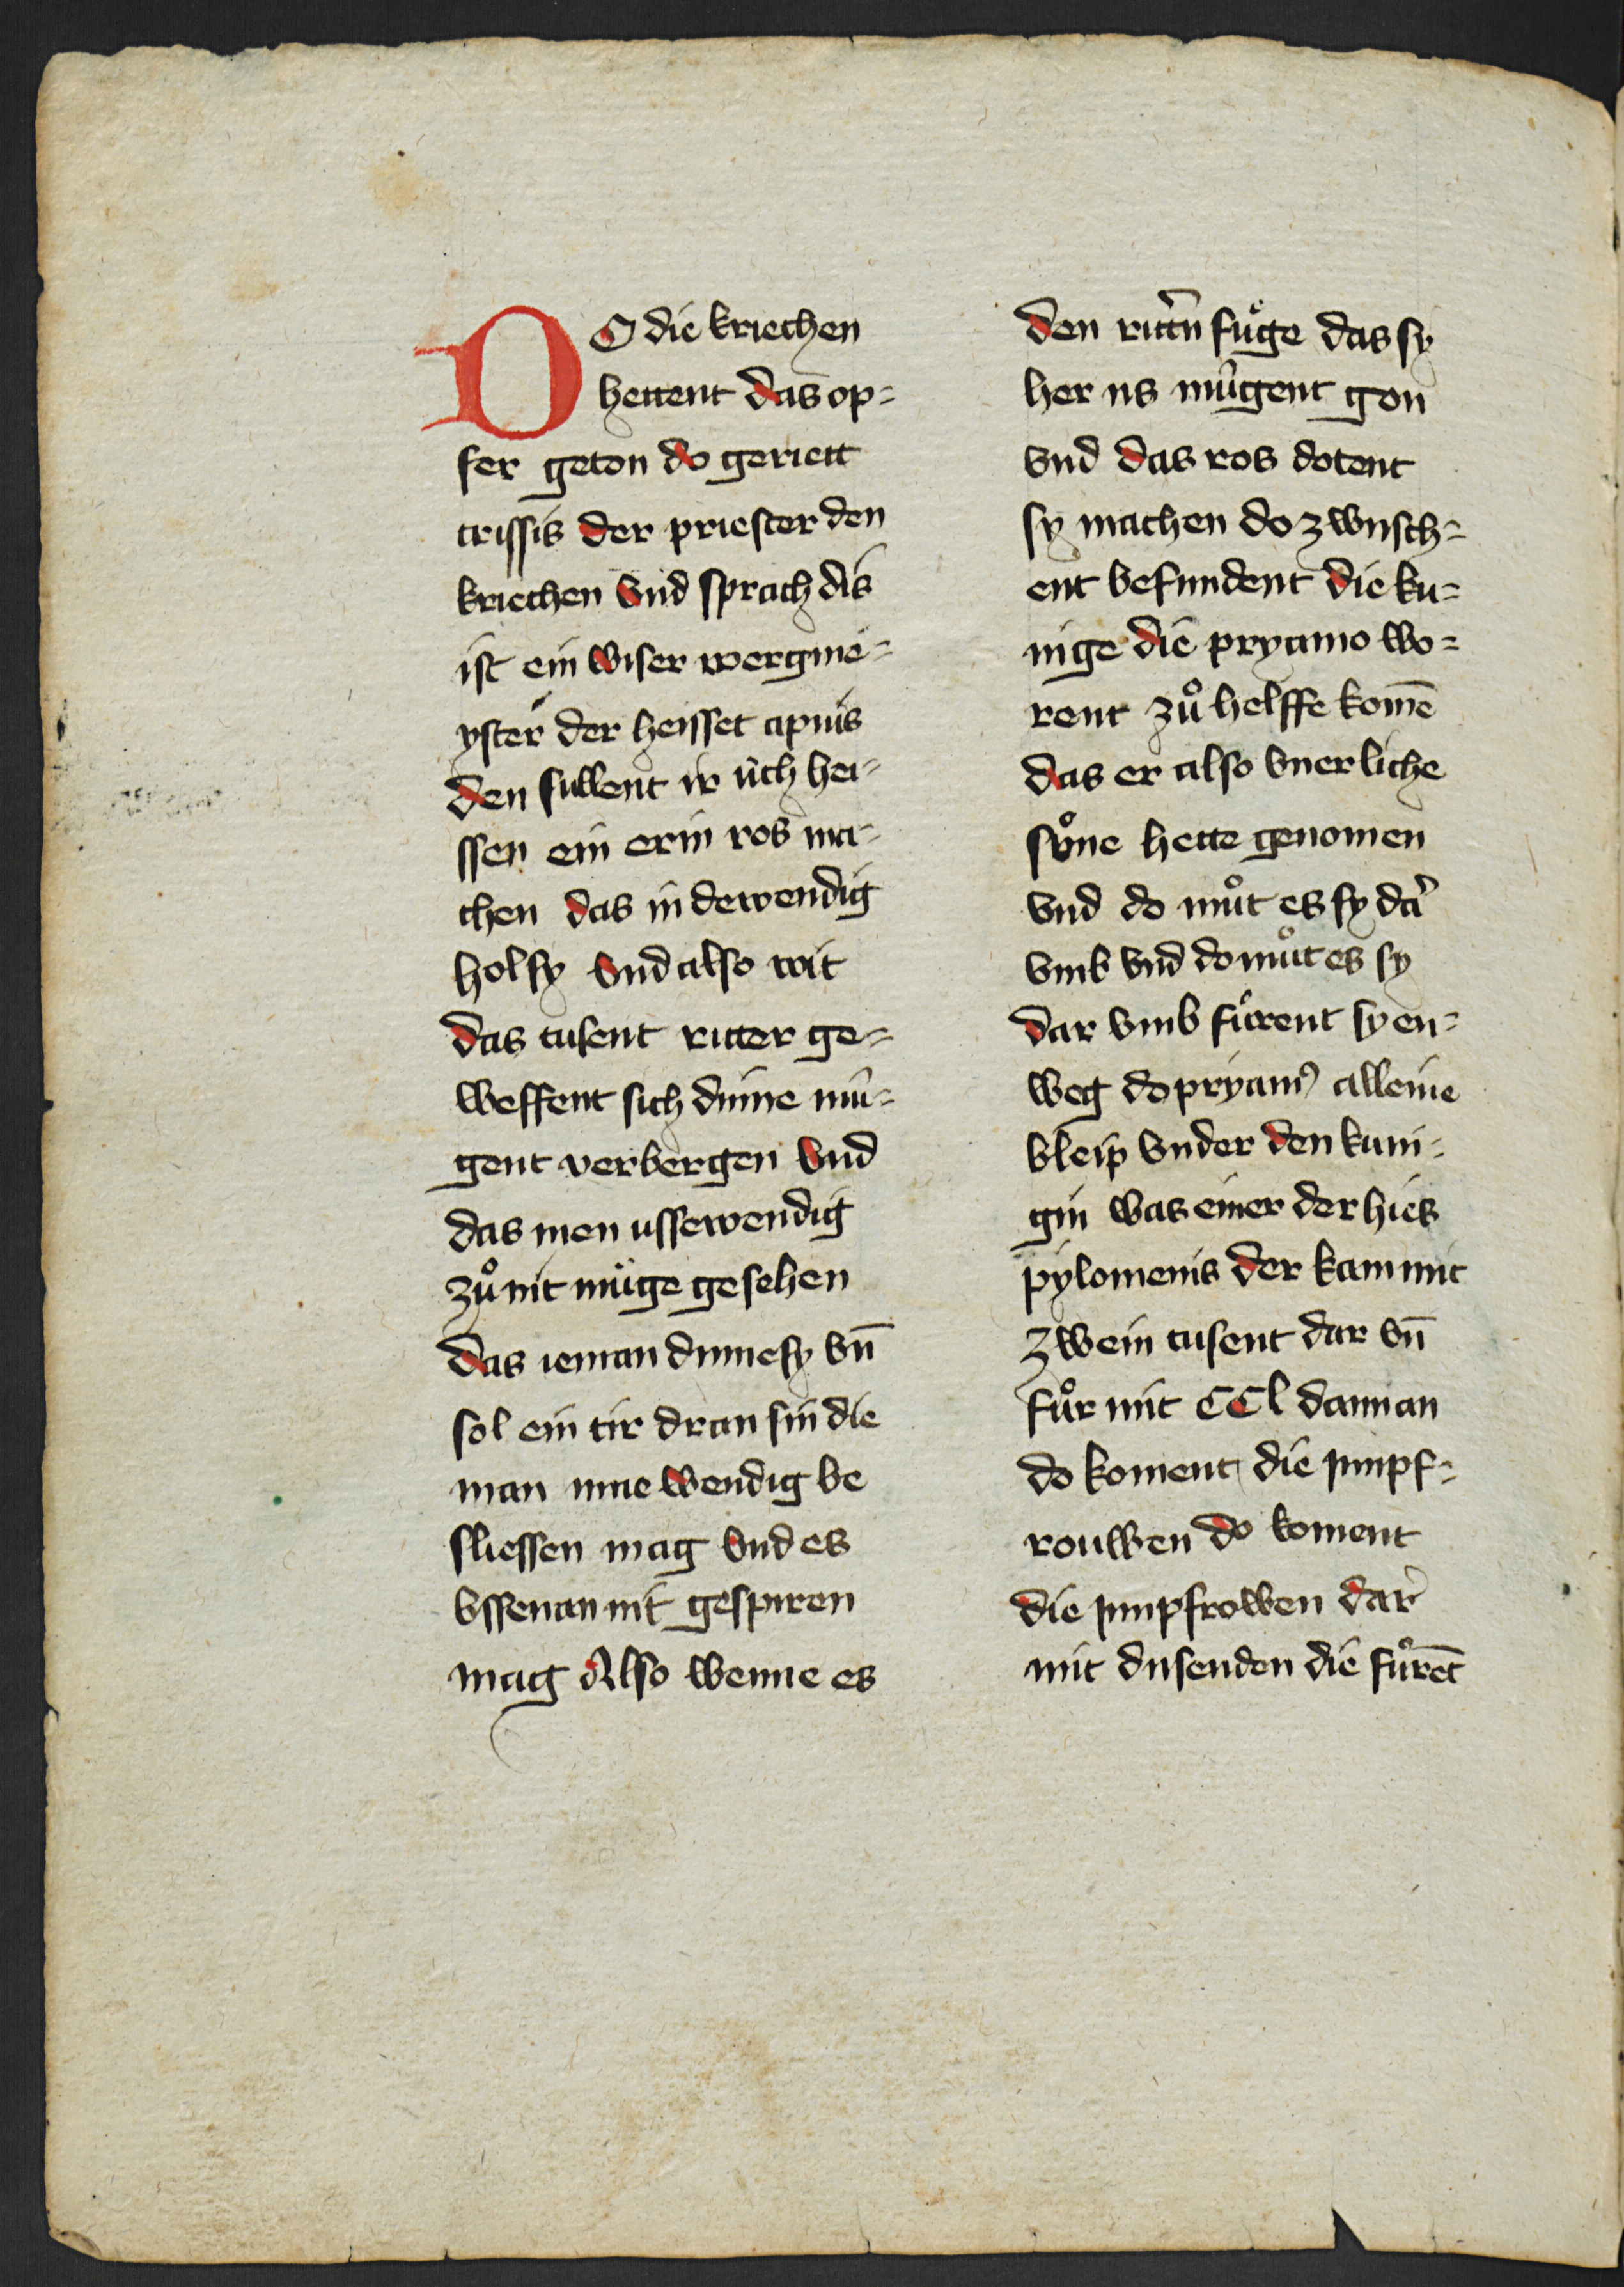 DO die kriechen
hettent das op=
fer geton do geriett
trissis der priester den
kriechen vnd sprach dis
ist ein wiser wergme=
yster der heisset apius
den sullent ir uͤch hei=
ssen ein erin ros ma=
chen das in dewendig
hol sy vnd also wit
das tusent ritter ge=
weffent sich dinne muͤ=
gent verbergen vnd
das men ussewendig
zuͦ nit muͤge gesehen
das ieman dinne sy vn̄
sol ein tir dran sin die
man inne wendig be
sliessen mag vnd es
vssenan nit gespiren
mag Also wenne es
den ritt̄n fuͤge das sy
her us muͤgent gon
vnd das ros dotent
sy machen do zwusch=
ent befundent die ku=
nige die pryamo wo=
rent zuͦ helffe komē
das er also vnerliche
suͦne hette genomen
vnd do muͦt es sy dar̄
vmb vnd do muͦt es sy
dar vmb fuͦrent sy en=
weg do pryamꝰ alleine
bleip vnder den kuni=
gin was einer der hies
pylomenis der kam mit
zwein tusent dar vn̄
fuͦr mit CCl dannan
do koment die junpf=
rouwen do koment
die junpfrowen dar
mit dusenden die fuͦrēt